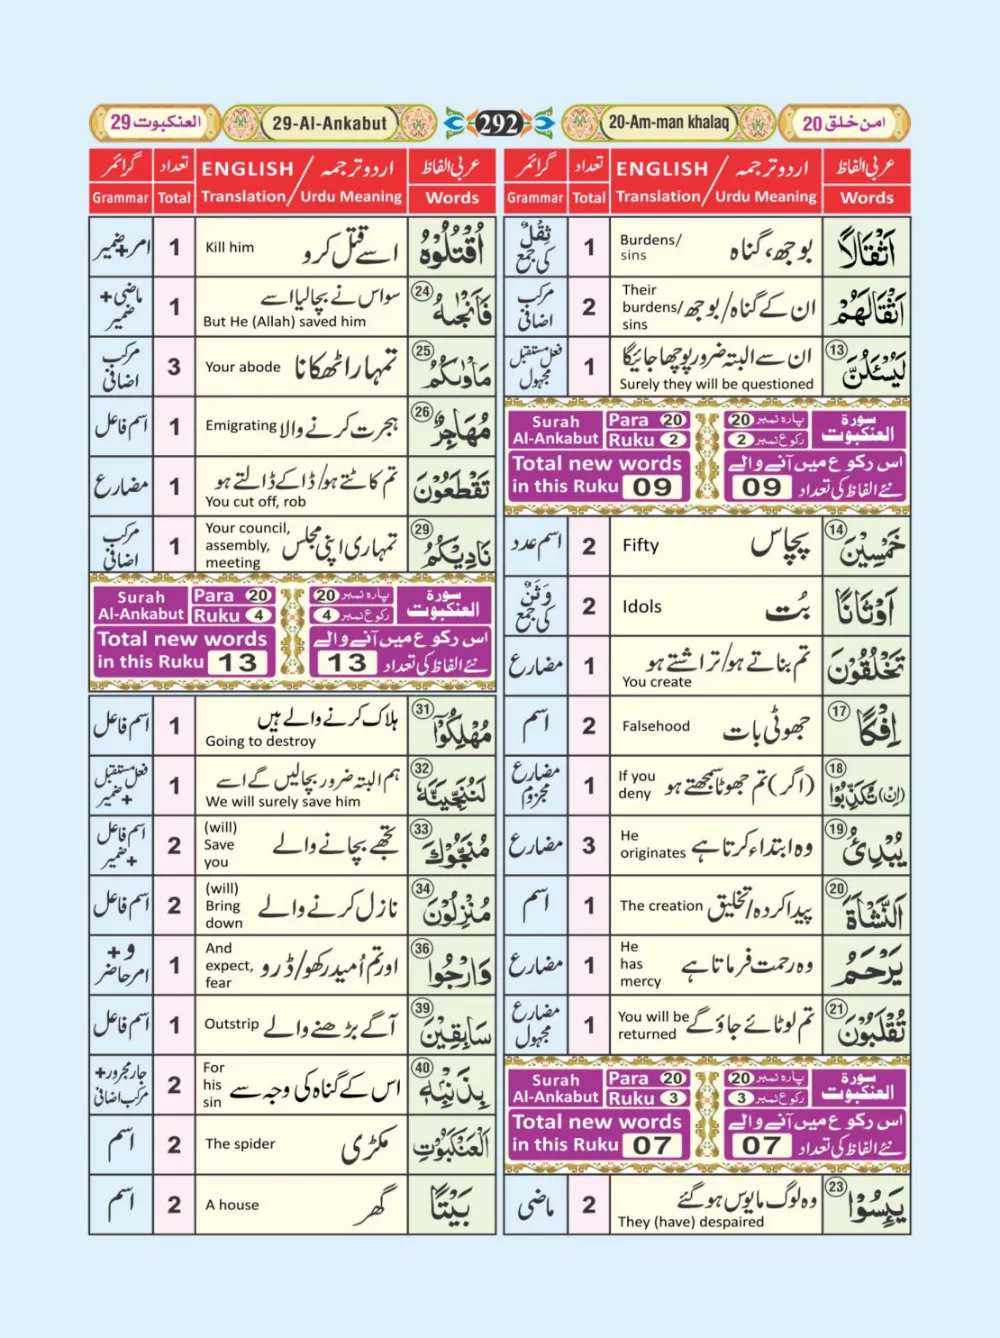 العنكبوت 29
29-Al-Ankabut
292
20-Am-man khalaq
امن خلق 20
عربی الفاظ اردو ترجمہ / ENGLISH تعداد گرائمر
Words Urdu Meaning / Translation Total Grammar
اَثْقَالًا بوجھ، گناہ Burdens/ sins 1 ثِقْلٌ کی جمع
اَثْقَالَهُمْ ان کے گناہ/بوجھ Their burdens/ sins 2 مرکب اضافی
لَيُسْـَٔلُنَّ 13 ان سے البتہ ضرور پوچھا جائیگا Surely they will be questioned 1 فعل مستقبل مجہول
Surah Al-Ankabut Para 20 Ruku 2 پارہ نمبر 20 رکوع نمبر 2 سورة العنكبوت
Total new words in this Ruku 09 اس رکوع میں آنے والے نئے الفاظ کی تعداد 09
خَمْسِيْنَ 14 پچاس Fifty 2 اسم عدد
اَوْثَانًا بُت Idols 2 وَثَنٌ کی جمع
تَخْلُقُوْنَ تم بناتے ہو/تراشتے ہو You create 1 مضارع
اِفْكًا 17 جھوٹی بات Falsehood 2 اسم
(اِنْ) تُكَذِّبُوْا 18 (اگر) تم جھوٹا سمجھتے ہو If you deny 1 مضارع مجزوم
يُبْدِئُ 19 وہ ابتداء کرتا ہے He originates 3 مضارع
اَلنَّشْاَةَ 20 پیدا کردہ/تخلیق The creation 1 اسم
يَرْحَمُ وہ رحمت فرماتا ہے He has mercy 1 مضارع
تُقْلَبُوْنَ 21 تم لوٹائے جاؤ گے You will be returned 1 مضارع مجہول
Surah Al-Ankabut Para 20 Ruku 3 پارہ نمبر 20 رکوع نمبر 3 سورة العنكبوت
Total new words in this Ruku 07 اس رکوع میں آنے والے نئے الفاظ کی تعداد 07
يَئِسُوْا 23 وہ لوگ مایوس ہو گئے They (have) despaired 2 ماضی
عربی الفاظ اردو ترجمہ / ENGLISH تعداد گرائمر
Words Urdu Meaning / Translation Total Grammar
اُقْتُلُوْهُ اسے قتل کرو Kill him 1 امر+ضمیر
فَاَنْجٰىهُ 24 سو اس نے بچا لیا اسے But He (Allah) saved him 1 ماضی + ضمیر
مَاْوٰىكُمُ 25 تمہارا ٹھکانا Your abode 3 مرکب اضافی
مُهَاجِرٌ 26 ہجرت کرنے والا Emigrating 1 اسم فاعل
تَقْطَعُوْنَ تم کاٹتے ہو/ڈاکے ڈالتے ہو You cut off, rob 1 مضارع
نَادِيْكُمُ 29 تمہاری اپنی مجلس Your council, assembly, meeting 1 مرکب اضافی
Surah Al-Ankabut Para 20 Ruku 4 پارہ نمبر 20 رکوع نمبر 4 سورة العنكبوت
Total new words in this Ruku 13 اس رکوع میں آنے والے نئے الفاظ کی تعداد 13
مُهْلِكُوْٓا 31 ہلاک کرنے والے ہیں Going to destroy 1 اسم فاعل
لَنُنَجِّيَنَّهٗ 32 ہم البتہ ضرور بچالیں گے اسے We will surely save him 1 فعل مستقبل + ضمیر
مُنَجُّوْكَ 33 تجھے بچانے والے (will) Save you 2 اسم فاعل + ضمیر
مُنْزِلُوْنَ 34 نازل کرنے والے (will) Bring down 2 اسم فاعل
وَارْجُوا 36 اور تم اُمید رکھو/ڈرو And expect, fear 1 و + امر حاضر
سَابِقِيْنَ 39 آگے بڑھنے والے Outstrip 1 اسم فاعل
بِذَنْۢبِهٖ 40 اس کے گناہ کی وجہ سے For his sin 2 جار مجرور + مرکب اضافی
اَلْعَنْكَبُوْتِ مکڑی The spider 2 اسم
بَيْتًا گھر A house 2 اسم